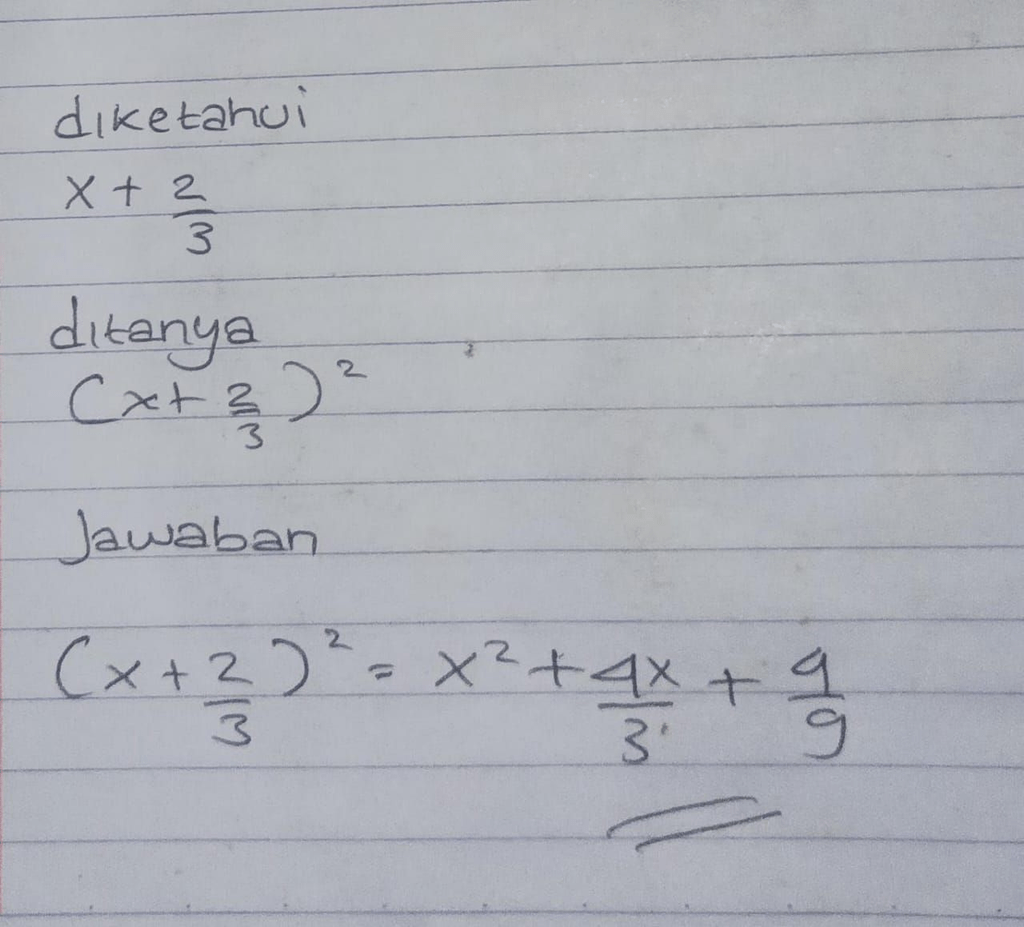 diketahui
x + 2/3
ditanya
(x + 2/3)²
Jawaban
(x + 2/3)² = x² + 4x/3 + 4/9